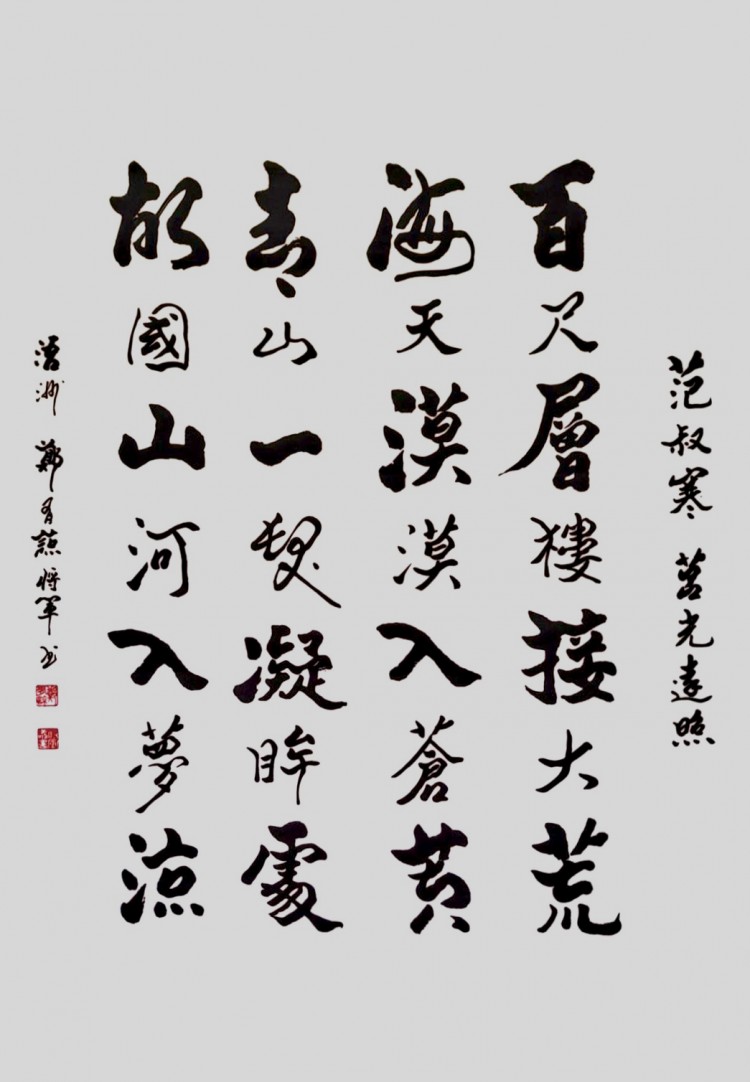 范叔寒 莒光遠照
百尺層樓接大荒
海天漠漠入蒼黃
青山一髮凝眸處
故國山河入夢涼
浯洲 鄭有諒將軍书